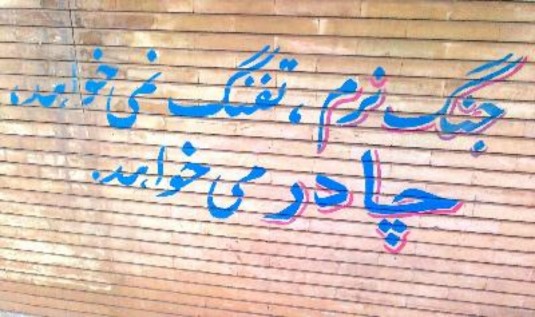 جنگ نرم ، تفنگ نمی خواهد،
چادر می خواهد.